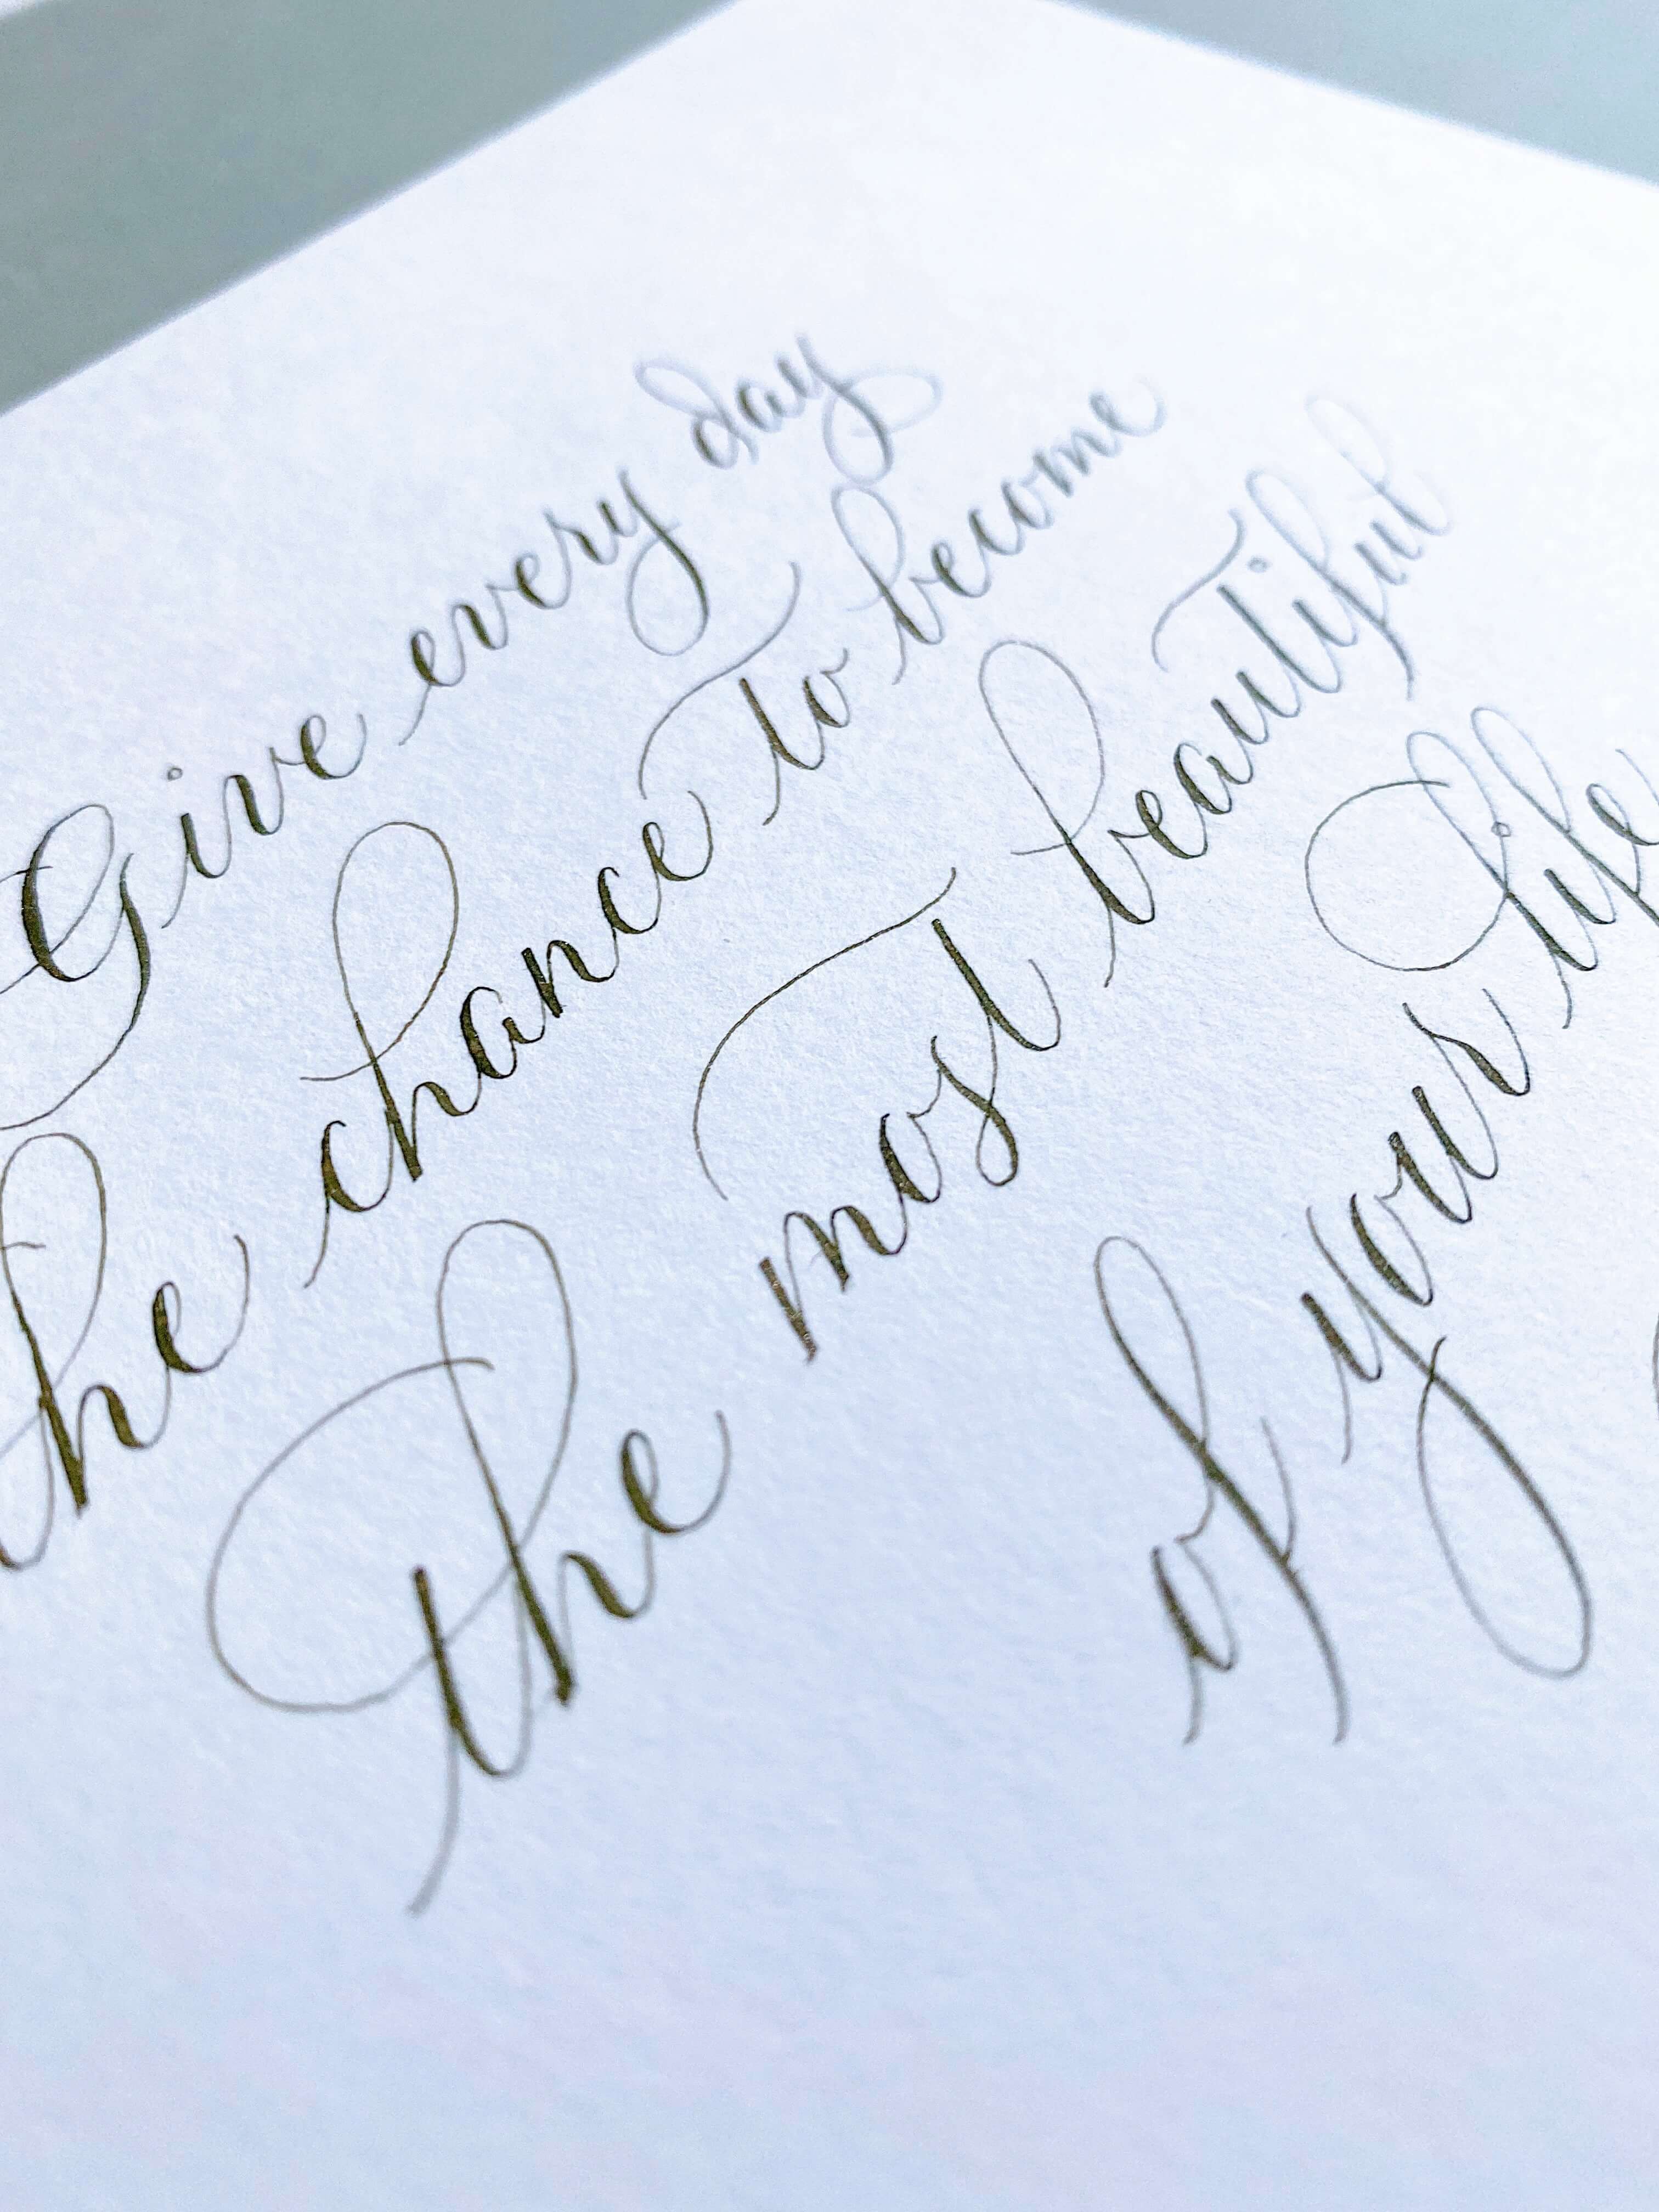 Give every day
he chance to become
the most beautiful
of your life